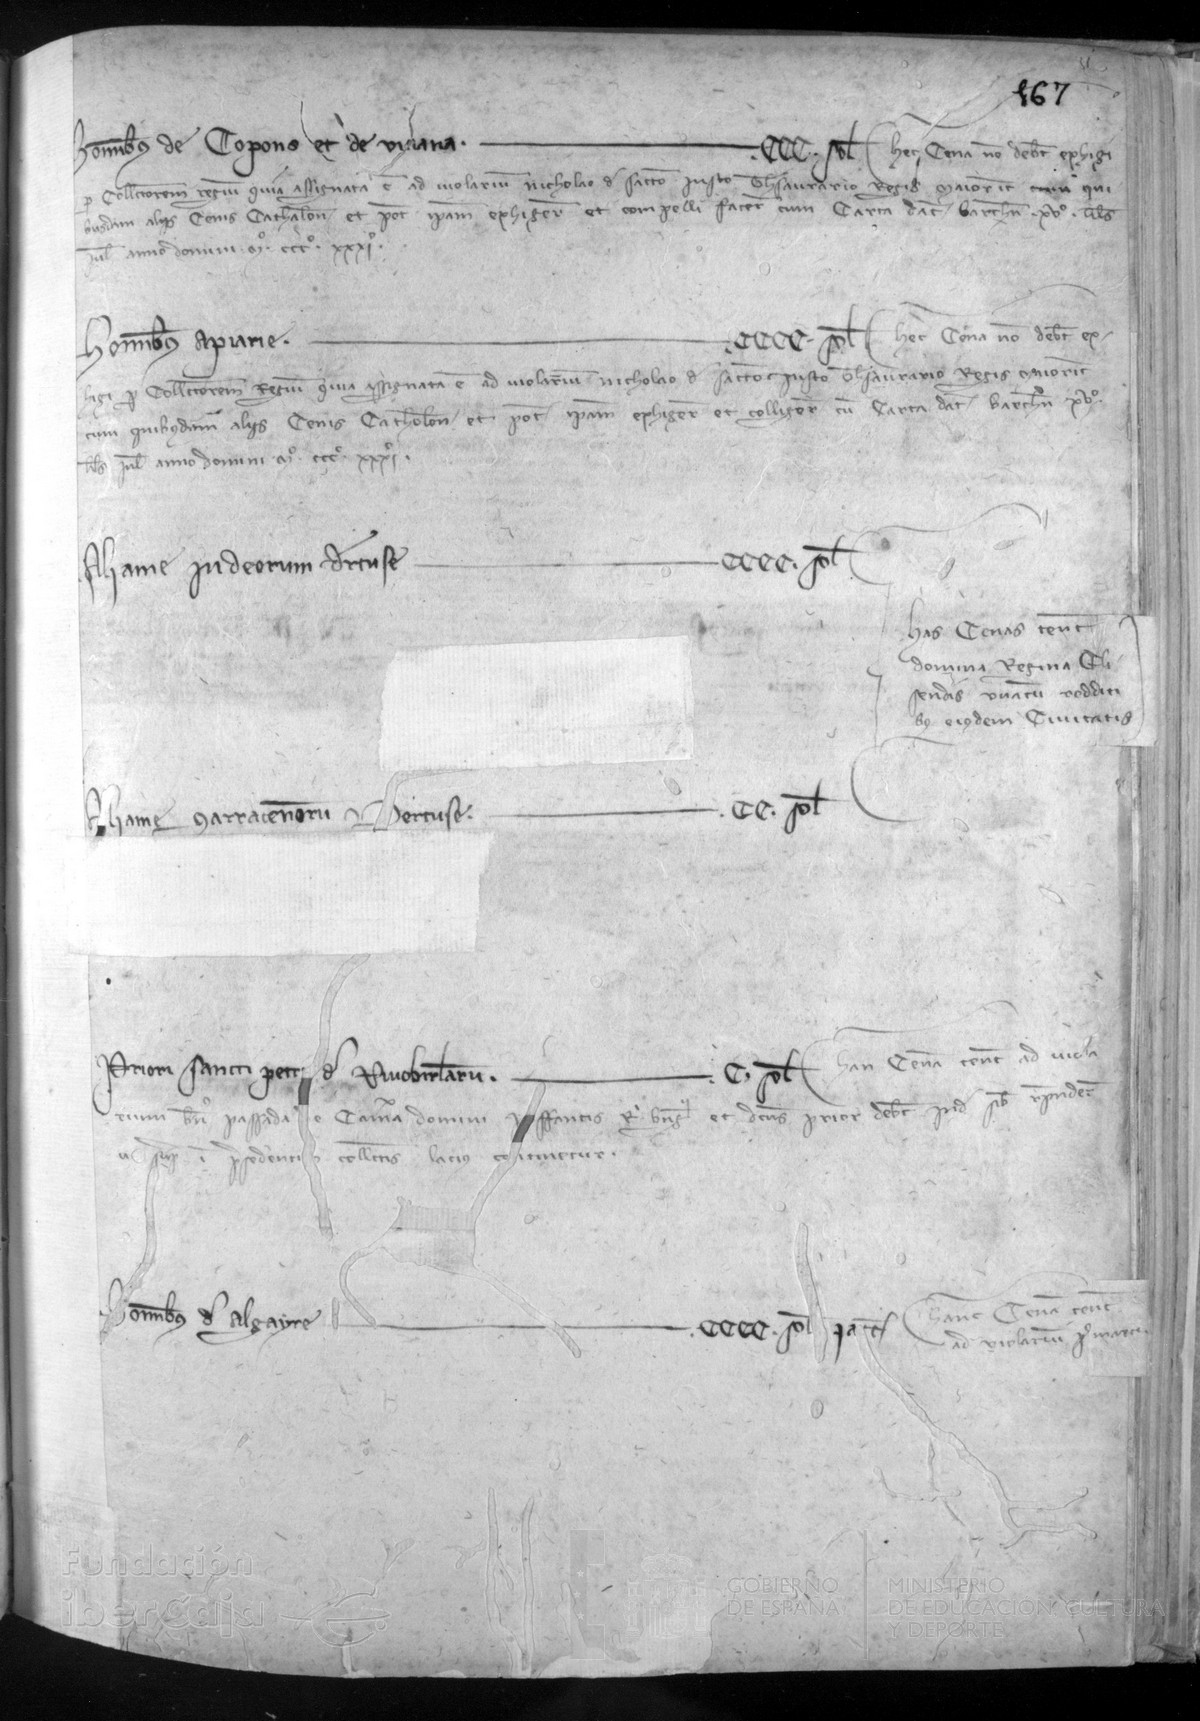 167
Hominibus de Copons et de viuana. CCC. sol hec Cena no debet exhigi
p Collectorem regium quia assignata e ad violarium Nicholao d sancto Justo Thesaurario Regis Maioric cum qui
busdam alijs Cenis Cathalon et pot ipam exhigere et compelli facere cum Carta dat barchn xvo. kls
Jul anno domini Mo. CCCo. xxxio.
Hominibus Apiarie. CCCC. sol hec Cena no debet ex
higi p Collectorem Regium quia assignata e ad violarium Nicholao d sancto Justo Thesaurario Regis Maioric
cum quibusdam alijs Cenis Cathalon et pot ipam exhigere et colligere cu Carta dat barchn xvo.
kls Jul anno domini Mo. CCCo. xxxio.
Aliame Judeorum Dertuse CCCC. sol
has Cenas tenet
domina Regina Eli
sendis vnacu redditi
bus eiusdem Ciuitatis
Aliame Sarracenoru Dertuse. CC. sol
Priori sancti petri d Riuobirlaru. C. sol han Cena tenet ad viola
rium passada Camera domini Infantis et dcus prior debet inde sibi respondere
i precedenti collectis lacius continetur.
Hominibus d Algayre CCCC. sol Jacc hanc Cena tenet
ad violarium
Fundación
iberCaja
GOBIERNO
DE ESPAÑA
MINISTERIO
DE EDUCACIÓN, CULTURA
Y DEPORTE